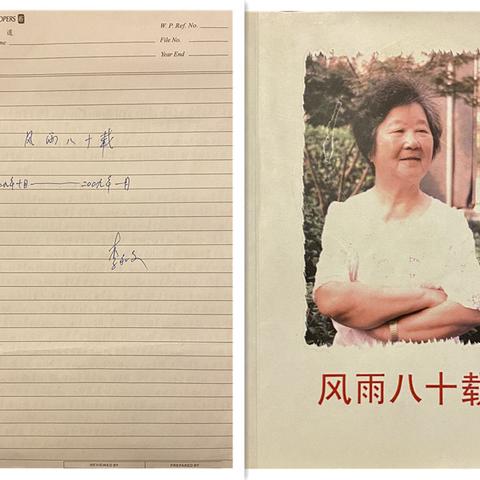 OPERS
道
ame
W. P. Ref. No.
File No.
Year End
风雨八十载
年十月——二〇〇九年一月
REVIEWED BY
PREPARED BY
风雨八十载